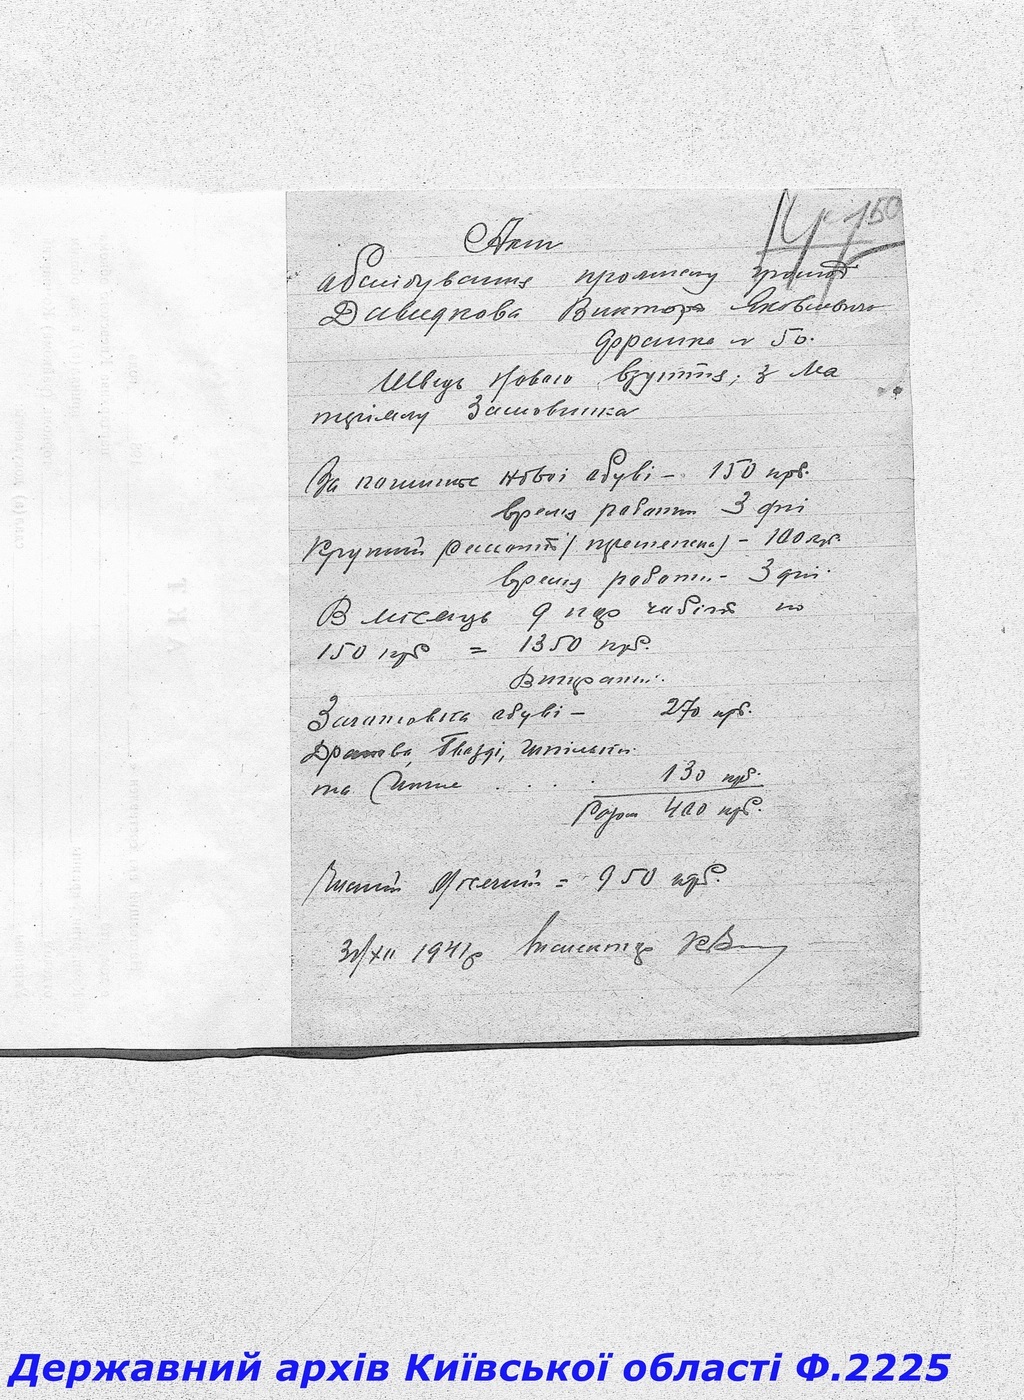 150
Акт
абслідування промислу громад
Давидкова Виктора Яковлевича
Франка № 50.
Швець Нового взуття; з Ма
теріялу Замовника
За пошитье новоі абуві — 150 крб.
время работи 3 дні
Крупний Ремонт (претяжка) — 100 кр.
время работи — 3 дні.
В місяць 9 пар чобіт по
150 крб = 1350 крб.
Витрати:
Заготовка абуві — 270 крб.
Дратва, Гвозді, шпільки
та Инше . . . . 130 крб.
Разом 400 крб.
Чистий Місячний = 950 крб.
31/XII 1941р Инспектор
Державний архів Київської області Ф.2225